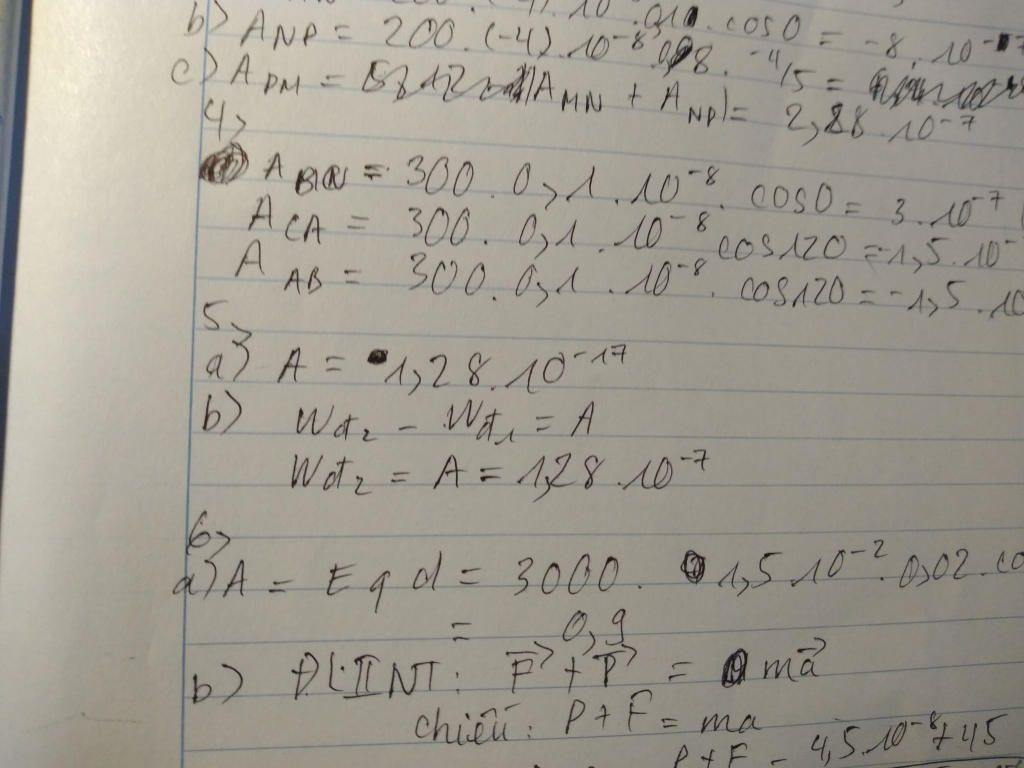 . 10 . 0,1 . cos0
b) A NP = 200.(-4).10^-8 . 0,08 . -4/5 = -8.10^-7
c) A PM = |A MN + A NP| = 2,88.10^-7
4,
A BC = 300 . 0,1 . 10^-8 . cos0 = 3.10^-7
A CA = 300 . 0,1 . 10^-8 cos120 = -1,5.10^-
A AB = 300 . 0,1 . 10^-8 . cos120 = -1,5.10
5,
a) A = 1,28.10^-17
b) Wđ2 - Wđ1 = A
Wđ2 = A = 1,28.10^-7
6,
a) A = Eqd = 3000. 1,5.10^-2. 0,02.co
= 0,9
b) ĐL II NT: F→ + P→ = ma→
chiếu: P + F = ma
P+F = 4,5.10^-8 + 45